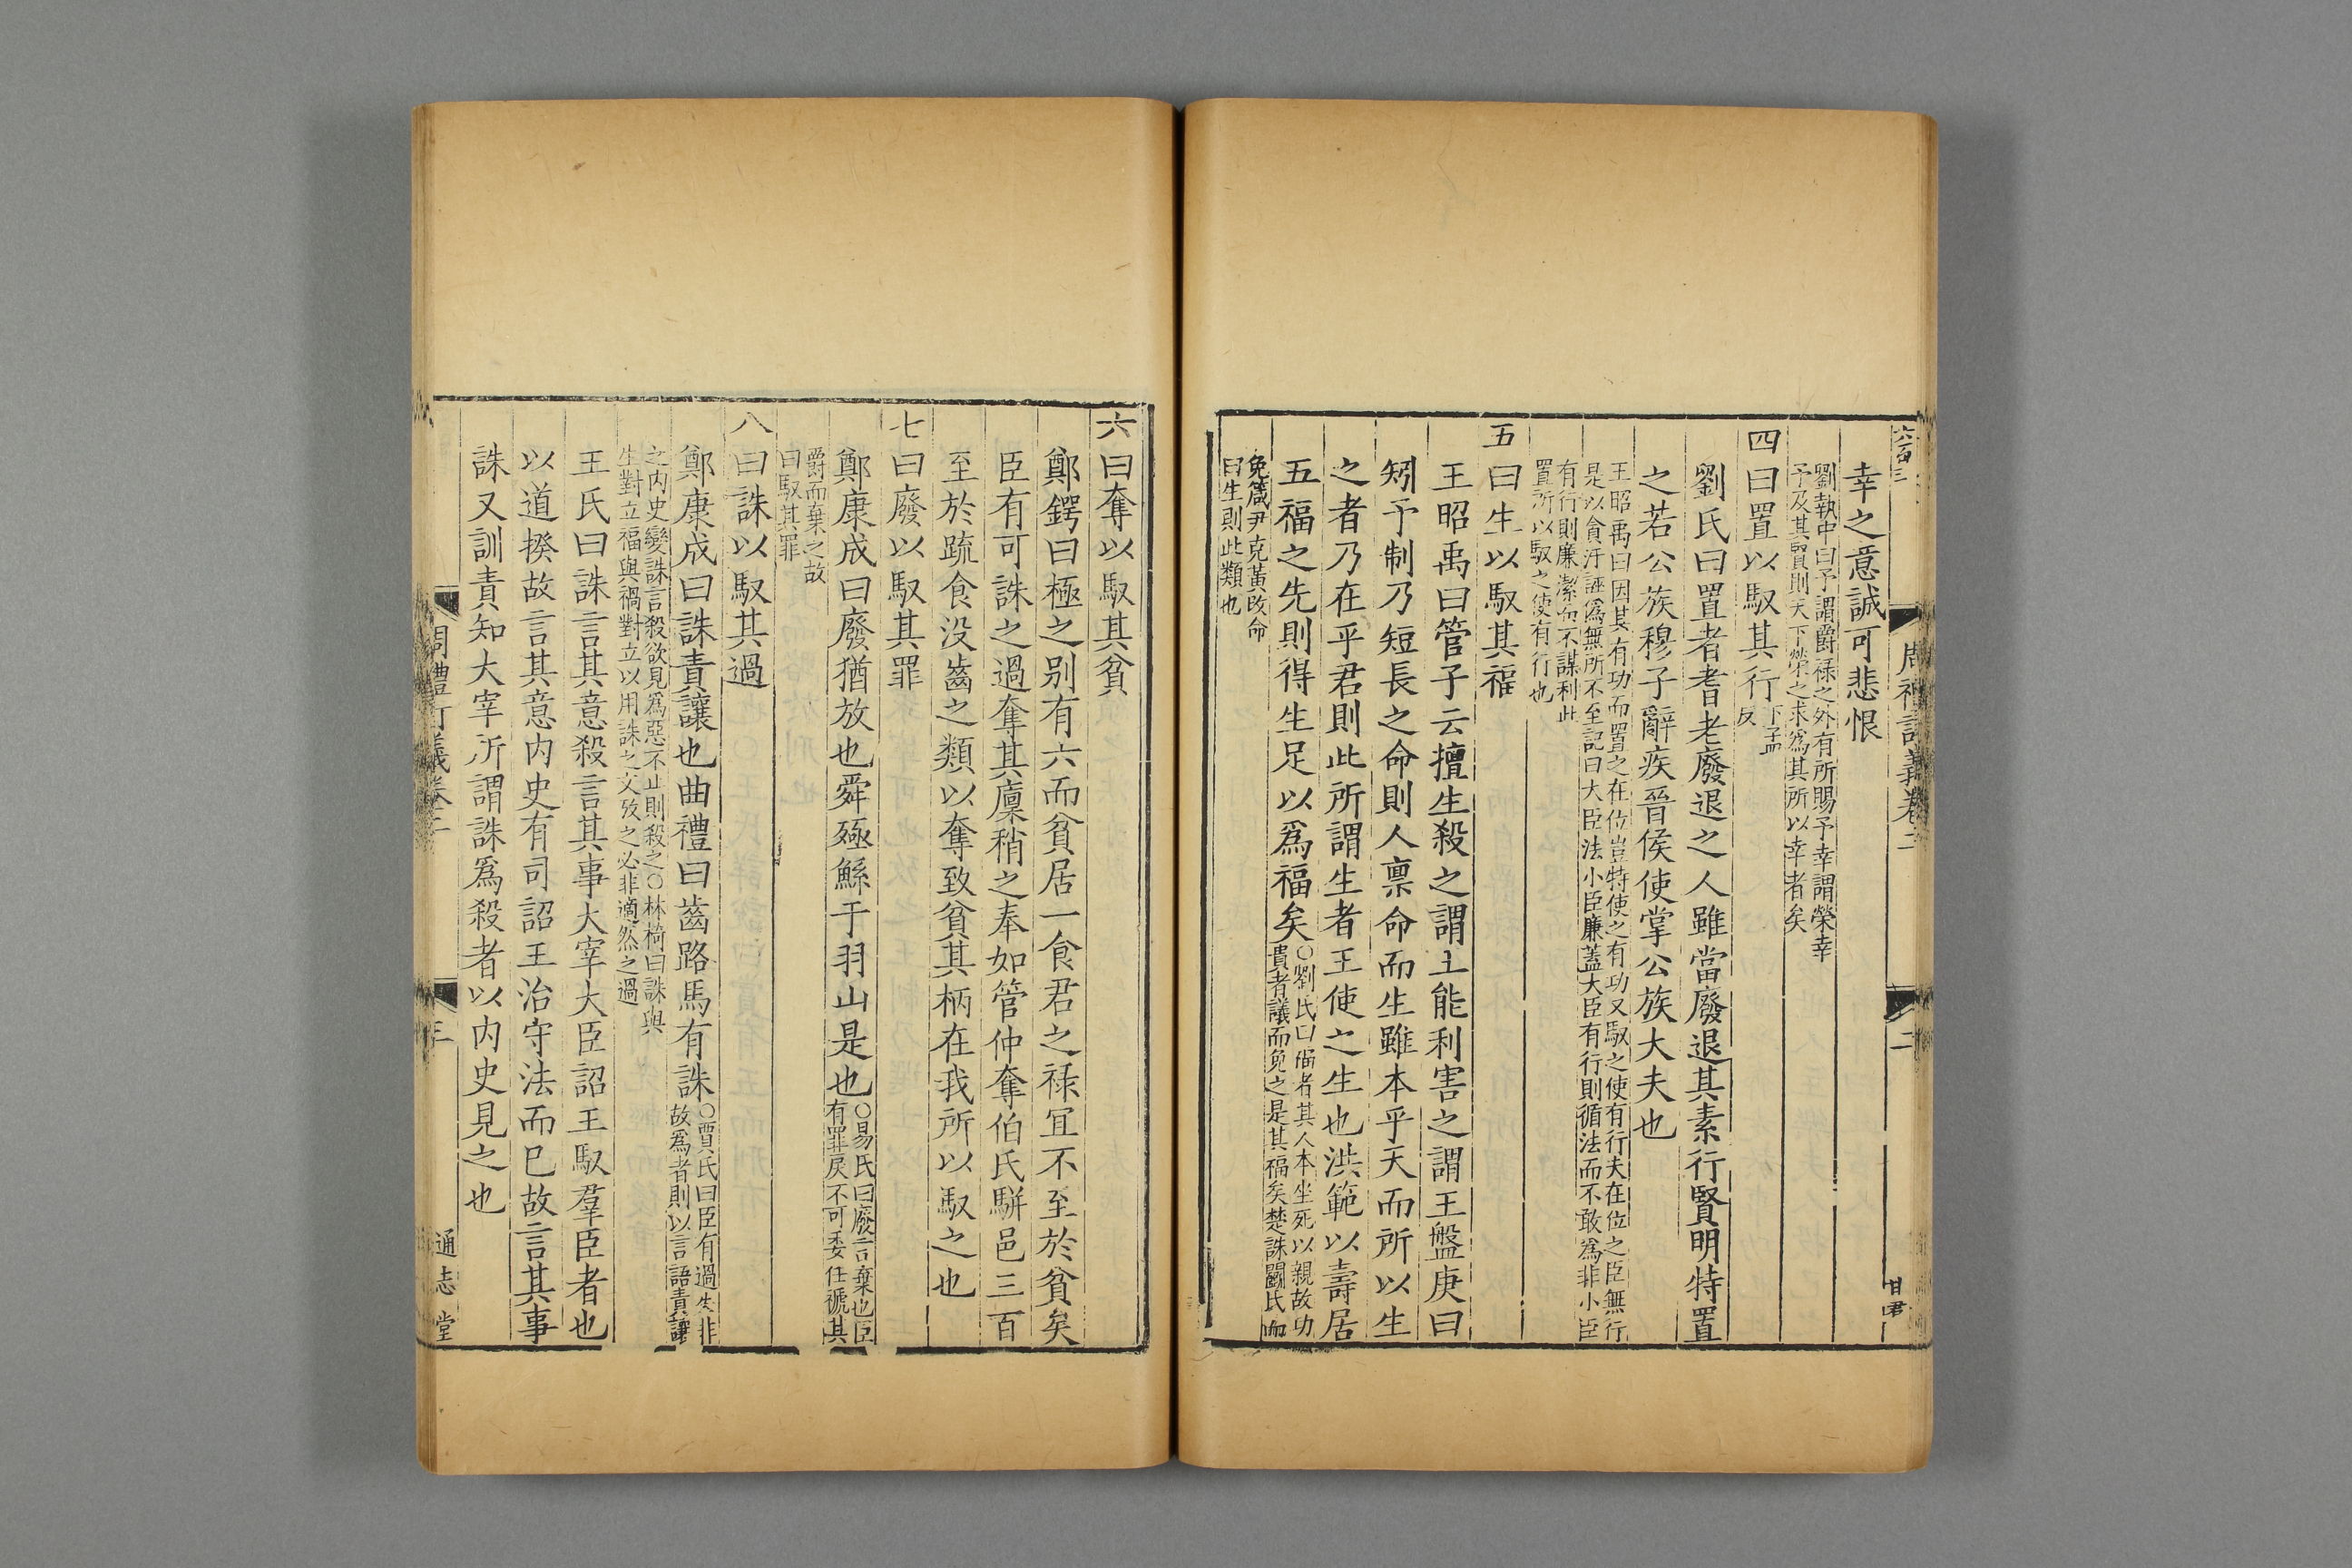 幸之意誠可悲恨
劉執中曰予謂爵禄之外有所賜予幸謂榮幸
予及其賢則天下榮之求爲其所以幸者矣
四曰置以馭其行下孟反
劉氏曰置者耆老廢退之人雖當廢退其素行賢明特置
之若公族穆子辭疾晉侯使掌公族大夫也
王昭禹曰因其有功而置之在位豈特使之有功又馭之使有行夫在位之臣無行
是以貪汙誣爲無所不至記曰大臣法小臣廉蓋大臣有行則循法而不敢爲非小臣
有行則廉潔而不謀利此
置所以馭之使有行也
五曰生以馭其福
王昭禹曰管子云擅生殺之謂士能利害之謂王盤庚曰
矧予制乃短長之命則人禀命而生雖本乎天而所以生
之者乃在乎君則此所謂生者王使之生也洪範以壽居
五福之先則得生足以爲福矣
○劉氏曰福者其人本坐死以親故功
貴者議而免之是其福矣楚誅鬭氏而
免箴尹克黃改命
曰生則此類也
周禮訂義卷二
二
甘君
六曰奪以馭其貧
鄭鍔曰極之别有六而貧居一食君之禄冝不至於貧矣
臣有可誅之過奪其廩稍之奉如管仲奪伯氏駢邑三百
至於䟽食没齒之類以奪致貧其柄在我所以馭之也
七曰廢以馭其罪
鄭康成曰廢猶放也舜殛鯀于羽山是也
○易氏曰廢言棄也臣
有罪戾不可委任禠其
爵而棄之故
曰馭其罪
八曰誅以馭其過
鄭康成曰誅責讓也曲禮曰齒路馬有誅
○賈氏曰臣有過失非
故爲者則以言語責讓
之内史變誅言殺欲見爲惡不止則殺之○林椅曰誅與
生對立福與禍對立以用誅之文攷之必非適然之過
王氏曰誅言其意殺言其事大宰大臣詔王馭羣臣者也
以道揆故言其意内史有司詔王治守法而已故言其事
誅又訓責知大宰所謂誅爲殺者以内史見之也
周禮訂義卷二
三
通志堂